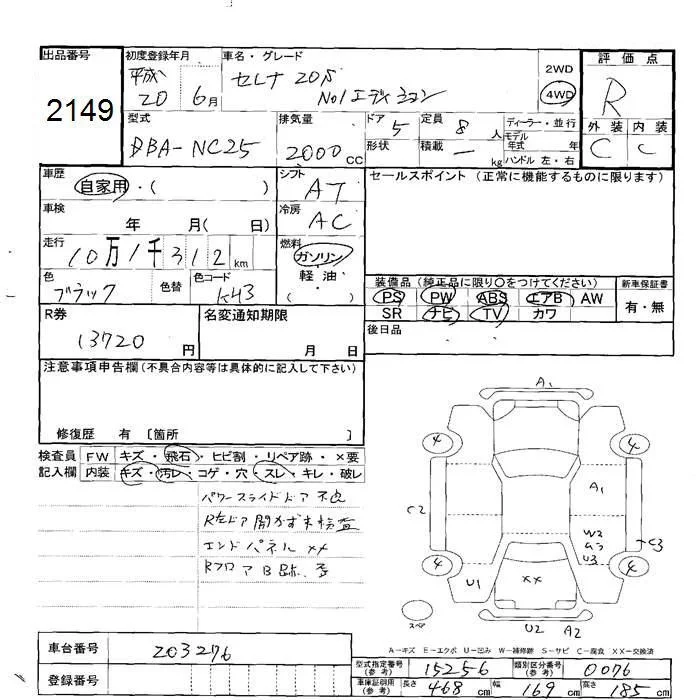 出品番号
2149
初度登録年月
平成
20 6月
車名・グレード
セレナ 20S
No1エディション
2WD
4WD
評価点
R
外装 内装
C C
型式
DBA-NC25
排気量
2000 CC
ドア 5
形状
定員 8 人
積載 — kg
ディーラー・並行
モデル
年式 年
ハンドル 左・右
車歴
自家用・( )
シフト
AT
セールスポイント (正常に機能するものに限ります)
車検
年 月( 日)
冷房
AC
走行
10万1千312km
燃料
ガソリン
軽油・
( )
色
ブラック
色替
色コード
KH3
装備品(純正品に限り○をつけてください)
PS PW ABS エアB AW
SR ナビ TV カワ
新車保証書
有・無
R券
13720 円
名変通知期限
月 日
後日品
注意事項申告欄(不具合内容等は具体的に記入して下さい)
修復歴 有 〔箇所 〕
検査員 FW キズ・飛石・ヒビ割・リペア跡・×要
記入欄 内装 キズ・汚レ・コゲ・穴・スレ・キレ・破レ
パワースライドドア不良
R左ドア開かず未検査
エンドパネルXX
RフロアB跡.歪
A1
4 4
A1
C2
W2
U3
C3
4 4
U1
XX
スペア
U2 A2
A−キズ E−エクボ U−凹み W−補修跡 S−サビ C−腐食 XX−交換済
車台番号
203276
登録番号
型式指定番号
(参考)
15256
類別区分番号
(参考)
0076
車庫証明用
(参考)
長さ 468 cm 幅 169 cm 高さ 185 cm